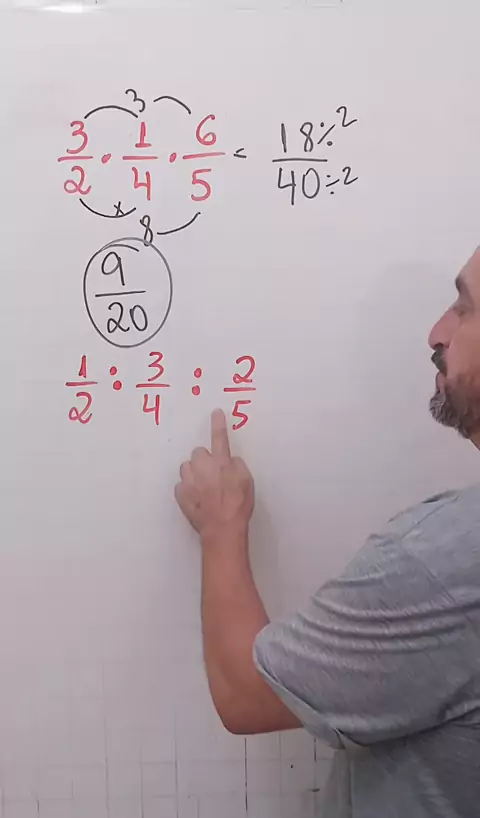 3/2 · 1/4 · 6/5 = 18÷2/40÷2
3
x 8
9/20
1/2 : 3/4 : 2/5